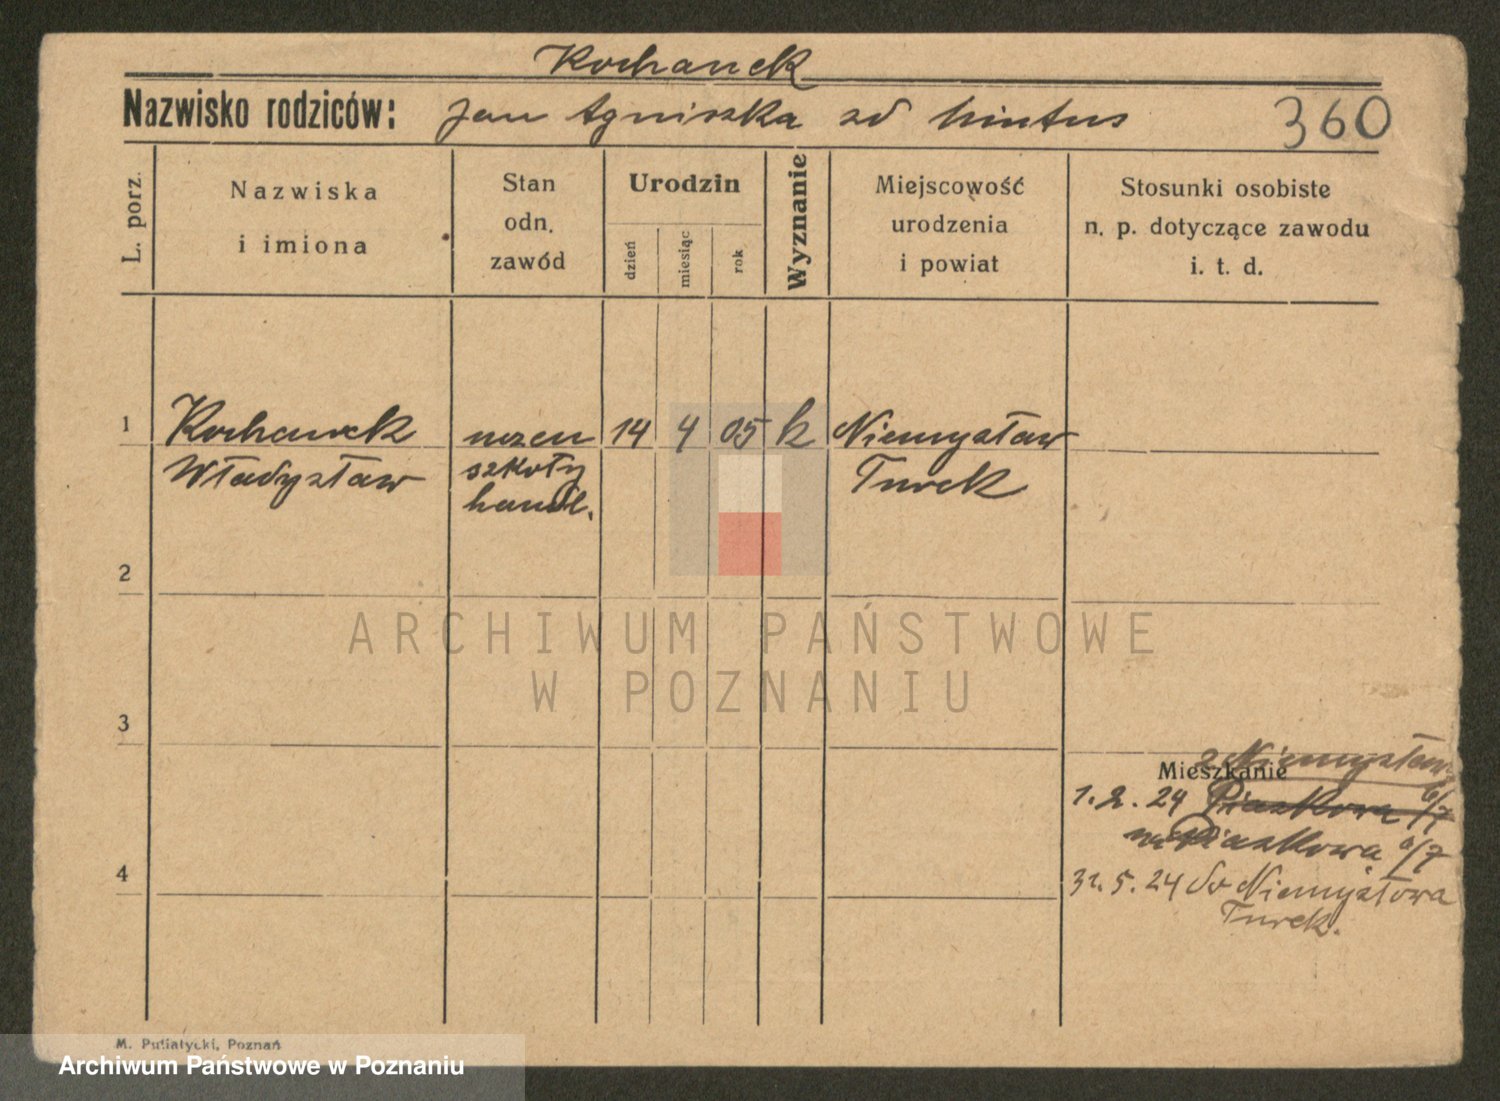 Kochanek
Nazwisko rodziców: Jan Agniszka zd Mintus
360
L. porz.
Nazwiska
i imiona
Stan
odn.
zawód
Urodzin
dzień
miesiąc
rok
Wyznanie
Miejscowość
urodzenia
i powiat
Stosunki osobiste
n. p. dotyczące zawodu
i. t. d.
1
Kochanek
Władysław
uczeń
szkoły
handl.
14
4
05
k
Niemysław
Turek
2
3
z Niemysłowa
Mieszkanie
1.2.24 Piaskowa 6/7
Piaskowa 6/7
4
31.5.24 do Niemysłowa
Turek.
M. Putiatycki, Poznań
ARCHIWUM PAŃSTWOWE
W POZNANIU
Archiwum Państwowe w Poznaniu